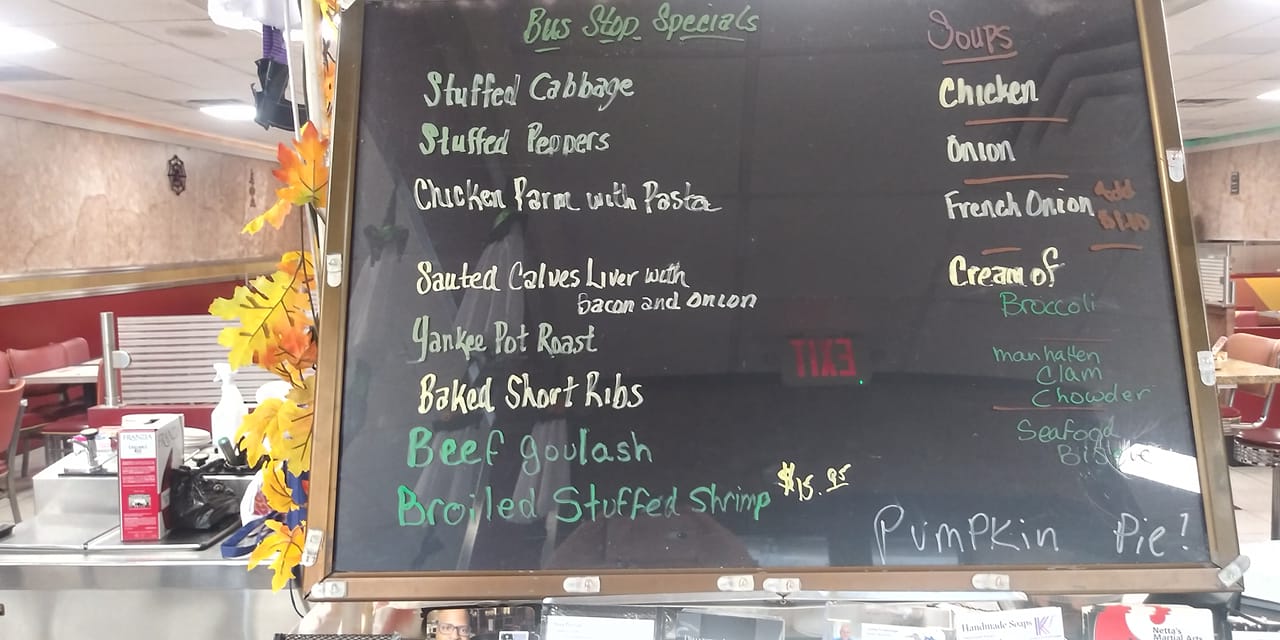 Bus Stop Specials
Stuffed Cabbage
Stuffed Peppers
Chicken Parm with Pasta
Sauted Calves Liver with
Bacon and Onion
Yankee Pot Roast
Baked Short Ribs
Beef goulash
Broiled Stuffed Shrimp $15.95
Soups
Chicken
Onion
French Onion
Add
Cream of
Broccoli
manhatten
Clam
Chowder
Seafood
Pumpkin Pie!
EXIT
FRANZIA
Handmade Soaps
Netta's
Martial Arts